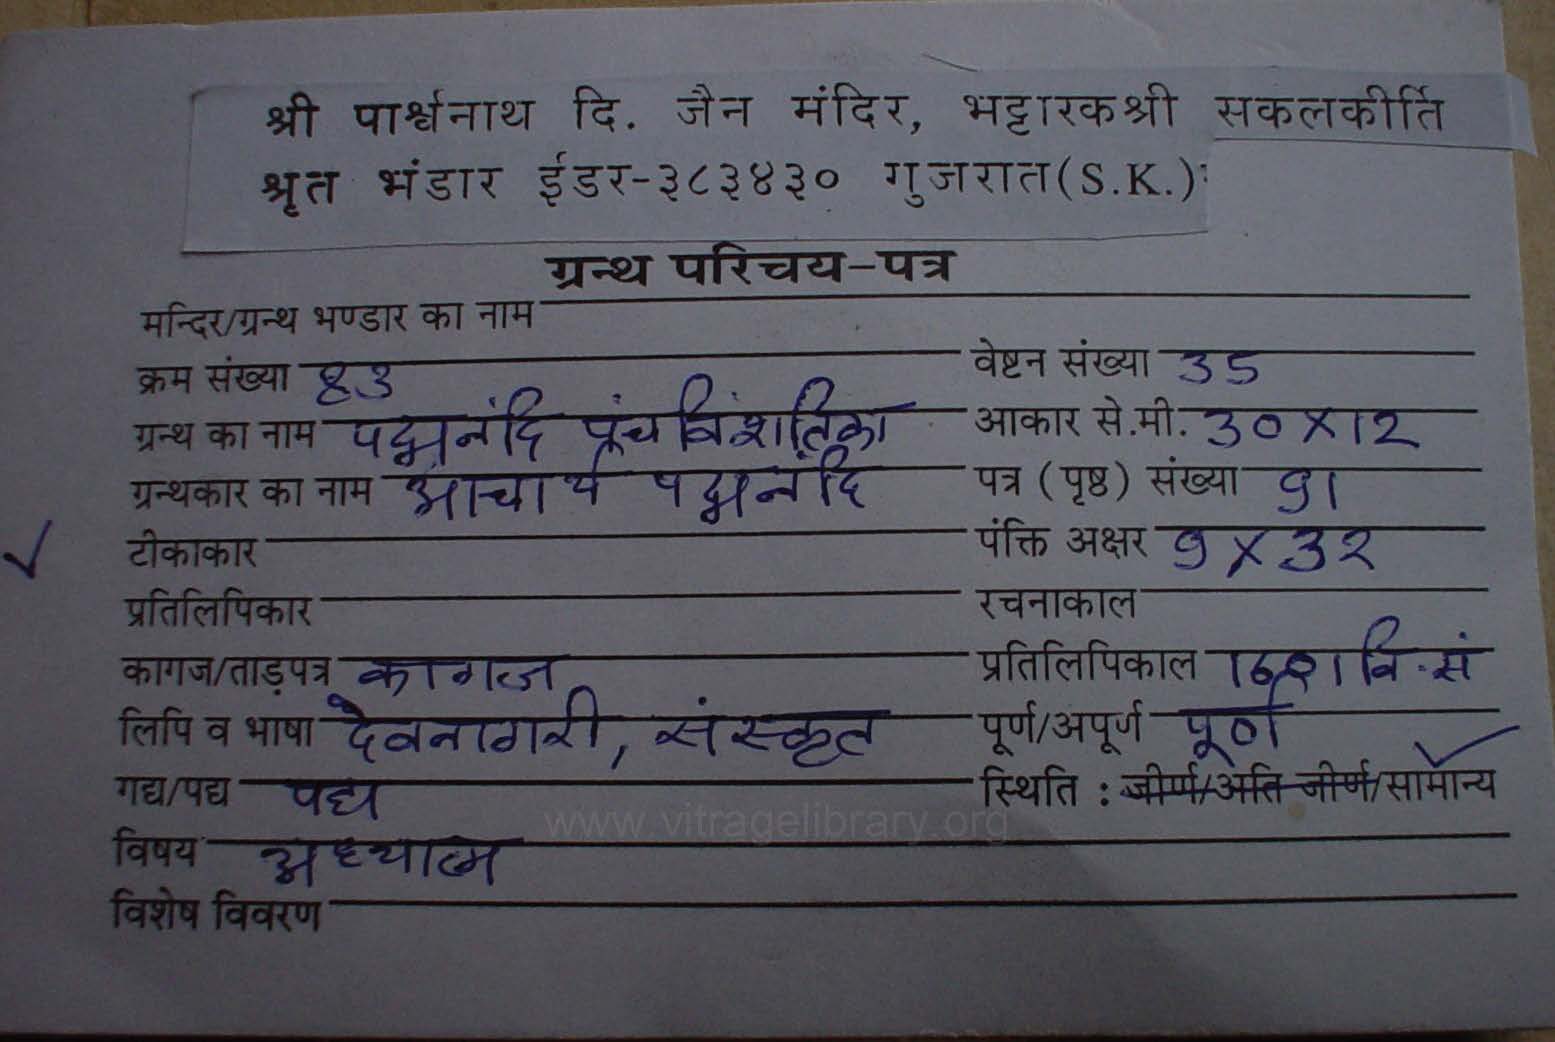 श्री पार्श्वनाथ दि. जैन मंदिर, भट्टारकश्री सकलकीर्ति
श्रृत भंडार ईडर-३८३४३० गुजरात(S.K.)
ग्रन्थ परिचय-पत्र
मन्दिर/ग्रन्थ भण्डार का नाम
क्रम संख्या 83 वेष्टन संख्या 35
ग्रन्थ का नाम पद्मनंदि पंचविंशतिका आकार से.मी. 30 X 12
ग्रन्थकार का नाम आचार्य पद्मनंदि पत्र (पृष्ठ) संख्या 91
टीकाकार पंक्ति अक्षर 9 X 32
प्रतिलिपिकार रचनाकाल
कागज/ताड़पत्र कागज प्रतिलिपिकाल वि.सं
लिपि व भाषा देवनागरी, संस्कृत पूर्ण/अपूर्ण पूर्ण
गद्य/पद्य पद्य स्थिति : जीर्ण/अति जीर्ण/सामान्य
www.vitragelibrary.org
विषय अध्यात्म
विशेष विवरण